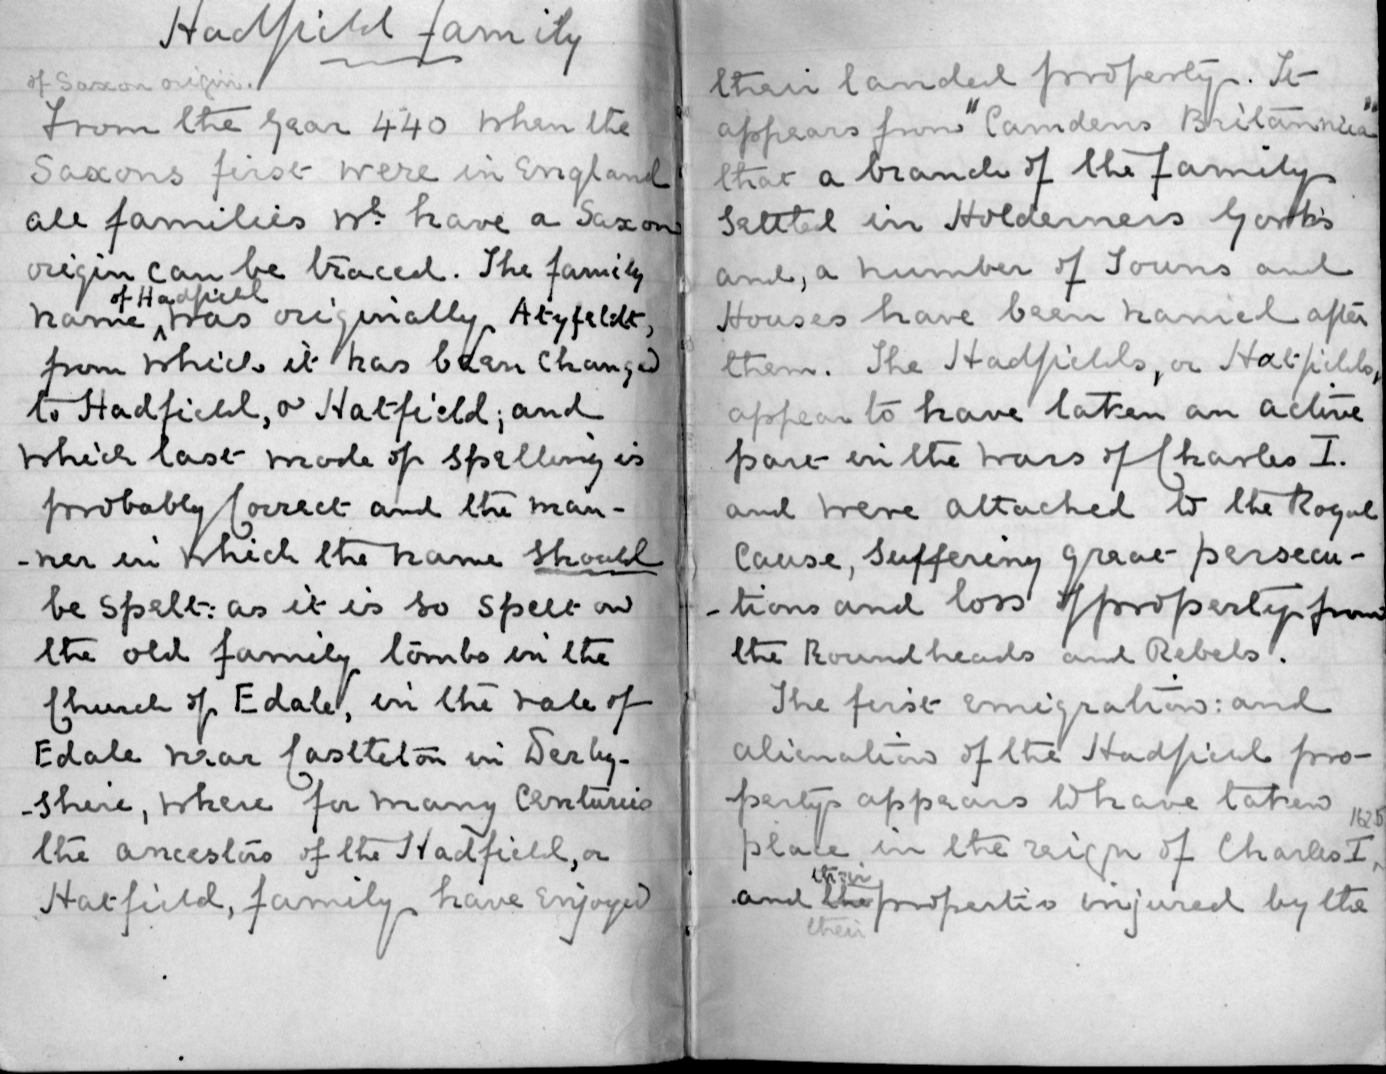 Hadfield family
of Saxon origin.
From the year 440 when the
Saxons first were in England
all families wh. have a Saxon
origin can be traced. The family
name of Hadfield was originally Atyfeldt,
from which it has been changed
to Hadfield, or Hatfield; and
which last mode of spelling is
probably correct and the man-
-ner in which the name should
be spelt: as it is so spelt on
the old family tombs in the
Church of Edale, in the vale of
Edale near Castleton in Derby-
-shire, where for many Centuries
the ancestors of the Hadfield, or
Hatfield, family have enjoyed
their landed property. It
appears from "Camdens Britannica"
that a branch of the family
settled in Holderness Yorks
and, a number of Towns and
Houses have been named after
them. The Hadfields, or Hatfields,
appear to have taken an active
part in the wars of Charles I.
and were attached to the Royal
Cause, suffering great persecu-
-tions and loss of property from
the Roundheads and Rebels.
The first emigration: and
alienation of the Hadfield pro-
-perty appears to have taken
place in the reign of Charles I, 1625
and the their properties injured by the
their